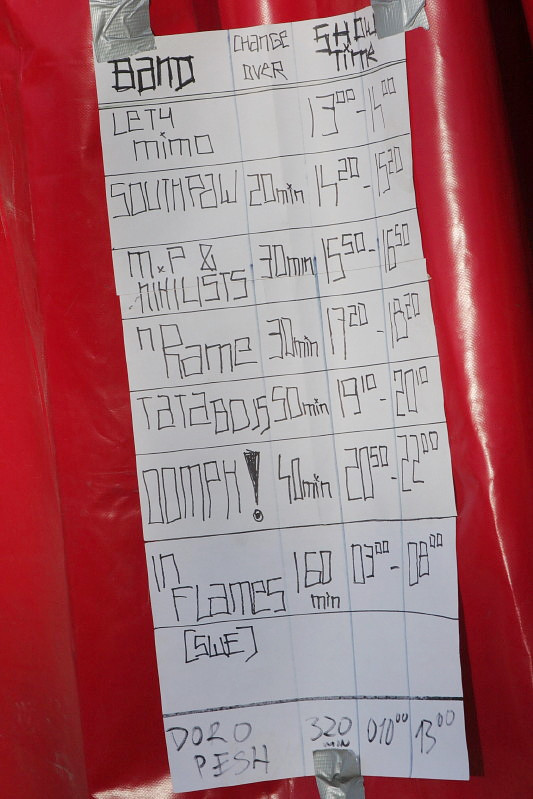 BAND CHANGE OVER SHOW TIME
LETY MIMO 13⁰⁰-14⁰⁰
SOUTHPAW 20min 14²⁰-15²⁰
M.P & NIHILISTS 30min 15⁵⁰-16⁵⁰
n Rame 30min 17²⁰-18²⁰
TATABOJS 50min 19¹⁰-20¹⁰
OOMPH! 40min 20⁵⁰-22⁰⁰
in FLAMES 160 min 03⁰⁰-08⁰⁰
[SWE]
DORO PESH 320 MIN 010⁰⁰ 13⁰⁰